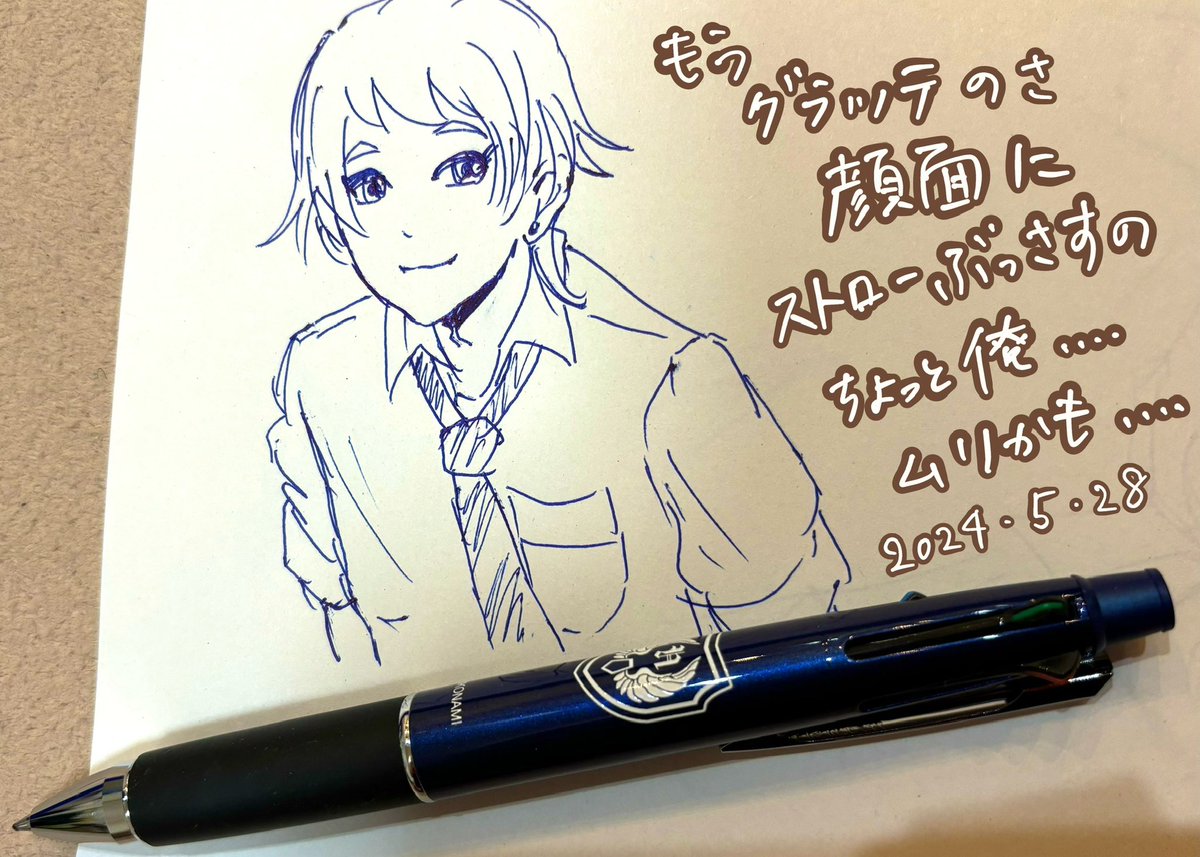 もう
グラッテのさ
顔面に
ストローぶっさすの
ちょっと俺‥‥
ムリかも‥‥
2024・5・28
KONAMI